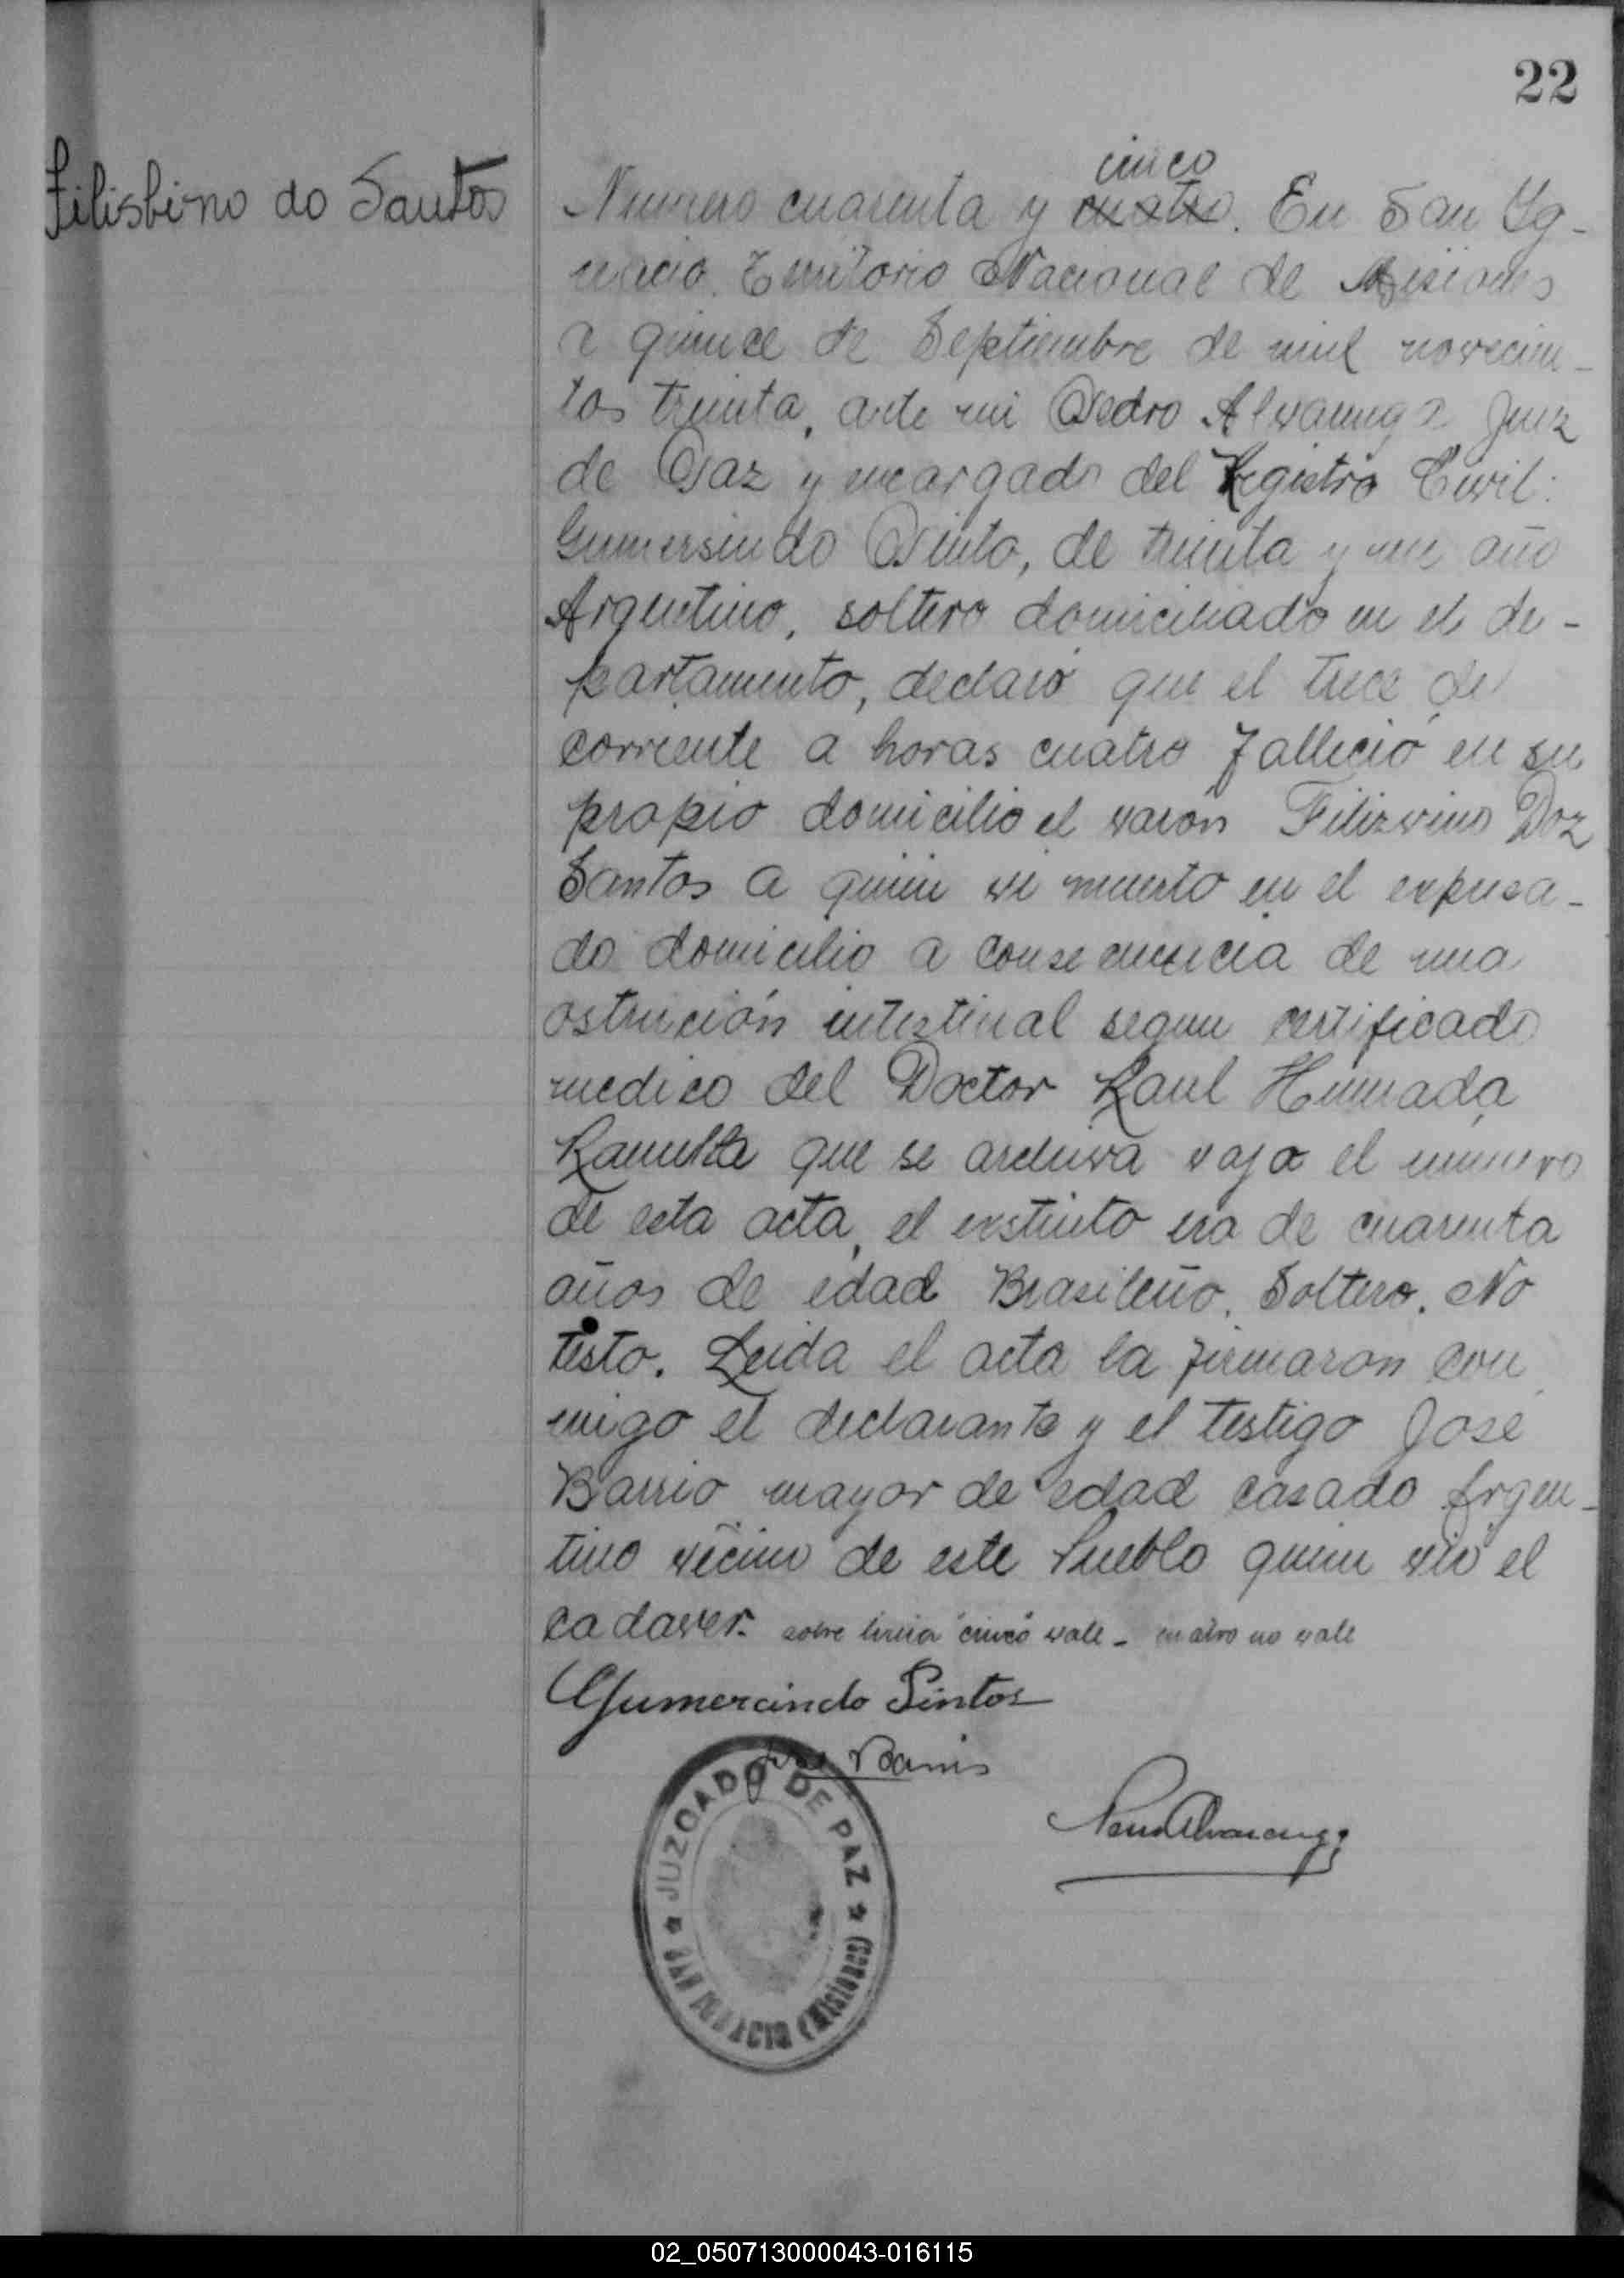 22
Filisbino do Santos
cinco
Numero cuarenta y cuatro. En San Yg-
nacio. Territorio Nacional de Misiones
a quince de Septiembre de mil novecien-
tos treinta, ante mi Pedro Alvarenga Juez
de Paz y encargado del Registro Civil:
Gumersindo Pinto, de treinta y un año
Argentino, soltero domiciliado en el de-
partamento, declaró que el trece de
corriente a horas cuatro falleció en su
propio domicilio el varón Filizvino Doz
Santos a quien vi muerto en el expresa-
do domicilio a consecuencia de una
ostrución intestinal segun certificado
medico del Doctor Raul Humada
que se archiva vajo el número
de esta acta, el exstinto era de cuarenta
años de edad Brasileño. Soltero. No
testo. Leida el acta la firmaron con
migo el declarante y el testigo José
Barrio mayor de edad casado Argen-
tino vecino de este Pueblo quien vió el
cadaver. sobre linia "cinco" vale - cuatro no vale
Gumercindo Pintos
Jose Barrios
Pedro Alvarenga
JUZGADO DE PAZ
SAN IGNACIO (MISIONES)
02_050713000043-016115